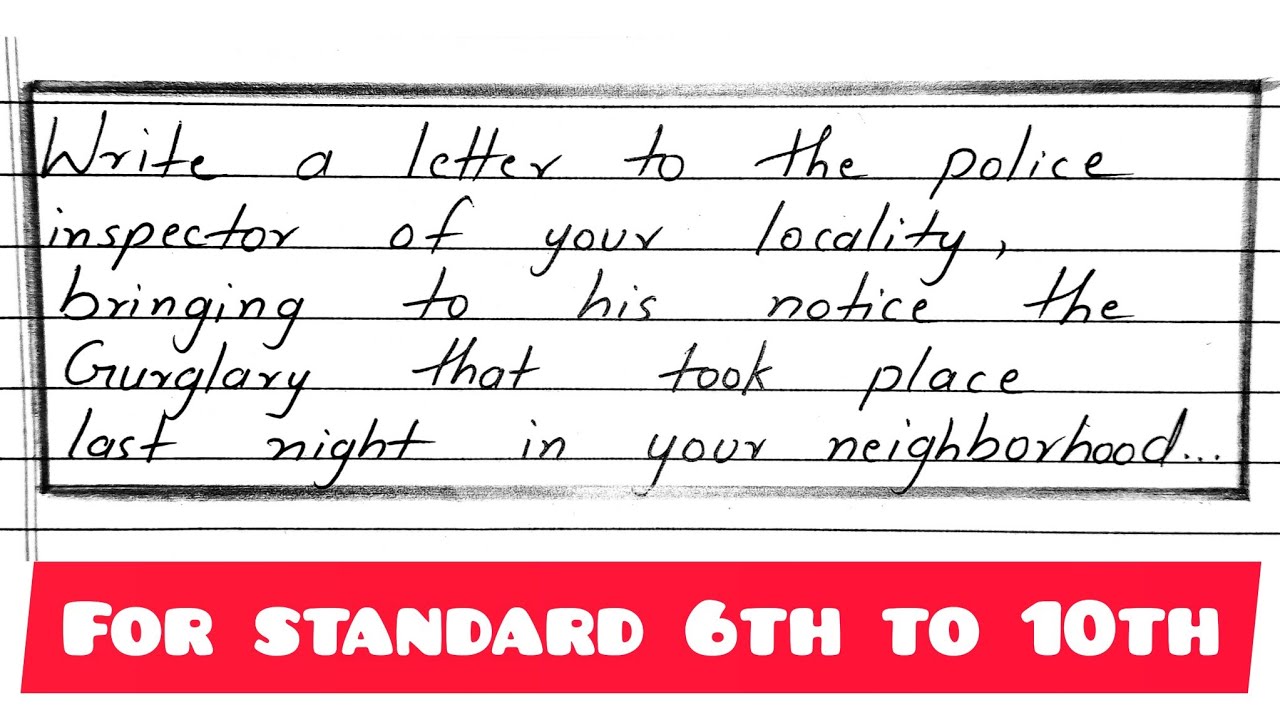 Write a letter to the police
inspector of your locality,
bringing to his notice the
Gurglary that took place
last night in your neighborhood...
FOR STANDARD 6TH TO 10TH